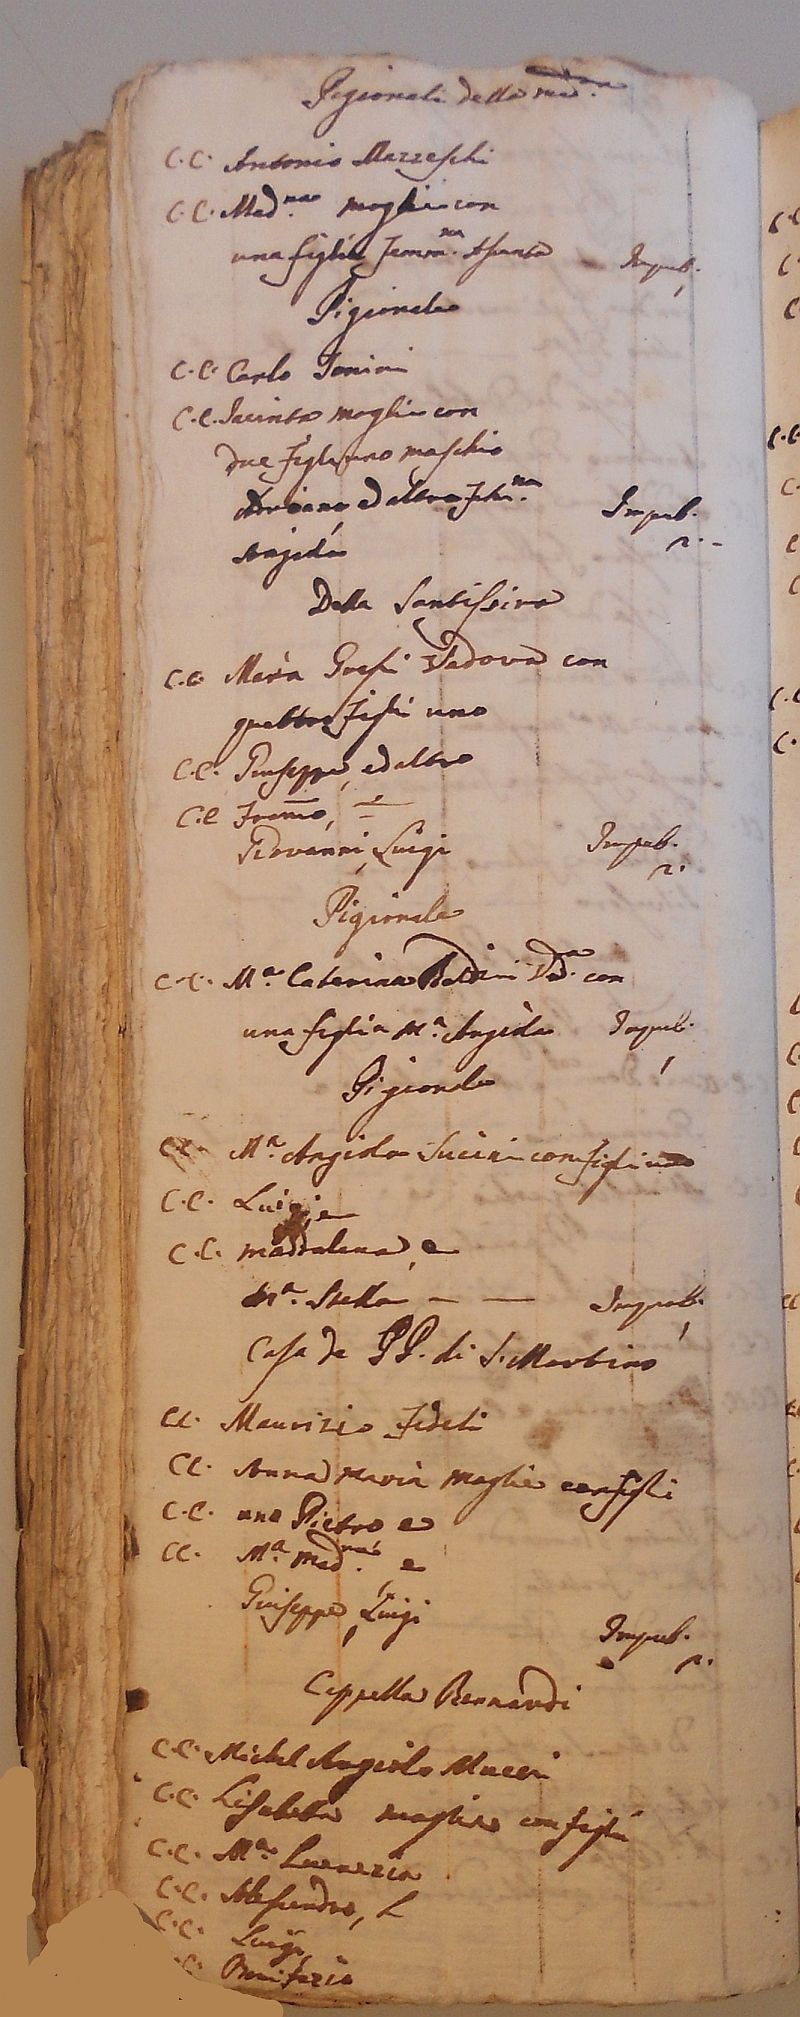 Pigionali della med.ma
C.C. Antonio Mazzeschi
C.C. Mad.na moglie con
una figlia femm.na Assunta - Impub.
1
Pigionale
C.C. Carlo Tonini
C.C. Jacinta moglie con
due figli uno maschio
Adriano ed altra fem.na Impub.
Angiola 2. -
Della Santissima
C.C. Maria Grossi Vedova con
quattro figli uno
C.C. Giuseppe, ed altro
C.C
Giovanni, Luigi Impub.
2.
Pigionale
C.C. M.a Caterina Baldini Ved.a con
una figlia M.a Angiola Impub.
1
Pigionale
C.C. M.a Angiola Lucini con figli uno
C.C. Luigi, e
C.C. Maddalena, e
M.a Stella - — Impub.
1
Casa de PP. di S. Martino
CC. Maurizio Fedeli
CC. Anna Maria moglie con figli
C.C. uno Pietro e
CC. M.a Mad.na e
Giuseppe, Luigi
Impub.
2.
Cappella Bernardi
C.C. Michel Angiolo Mucci
C.C. Lisabetta moglie con figli
C.C. M.a Lucrezia
C.C. Alessandro, e
C.C. Luigi,
C. Bonifazio